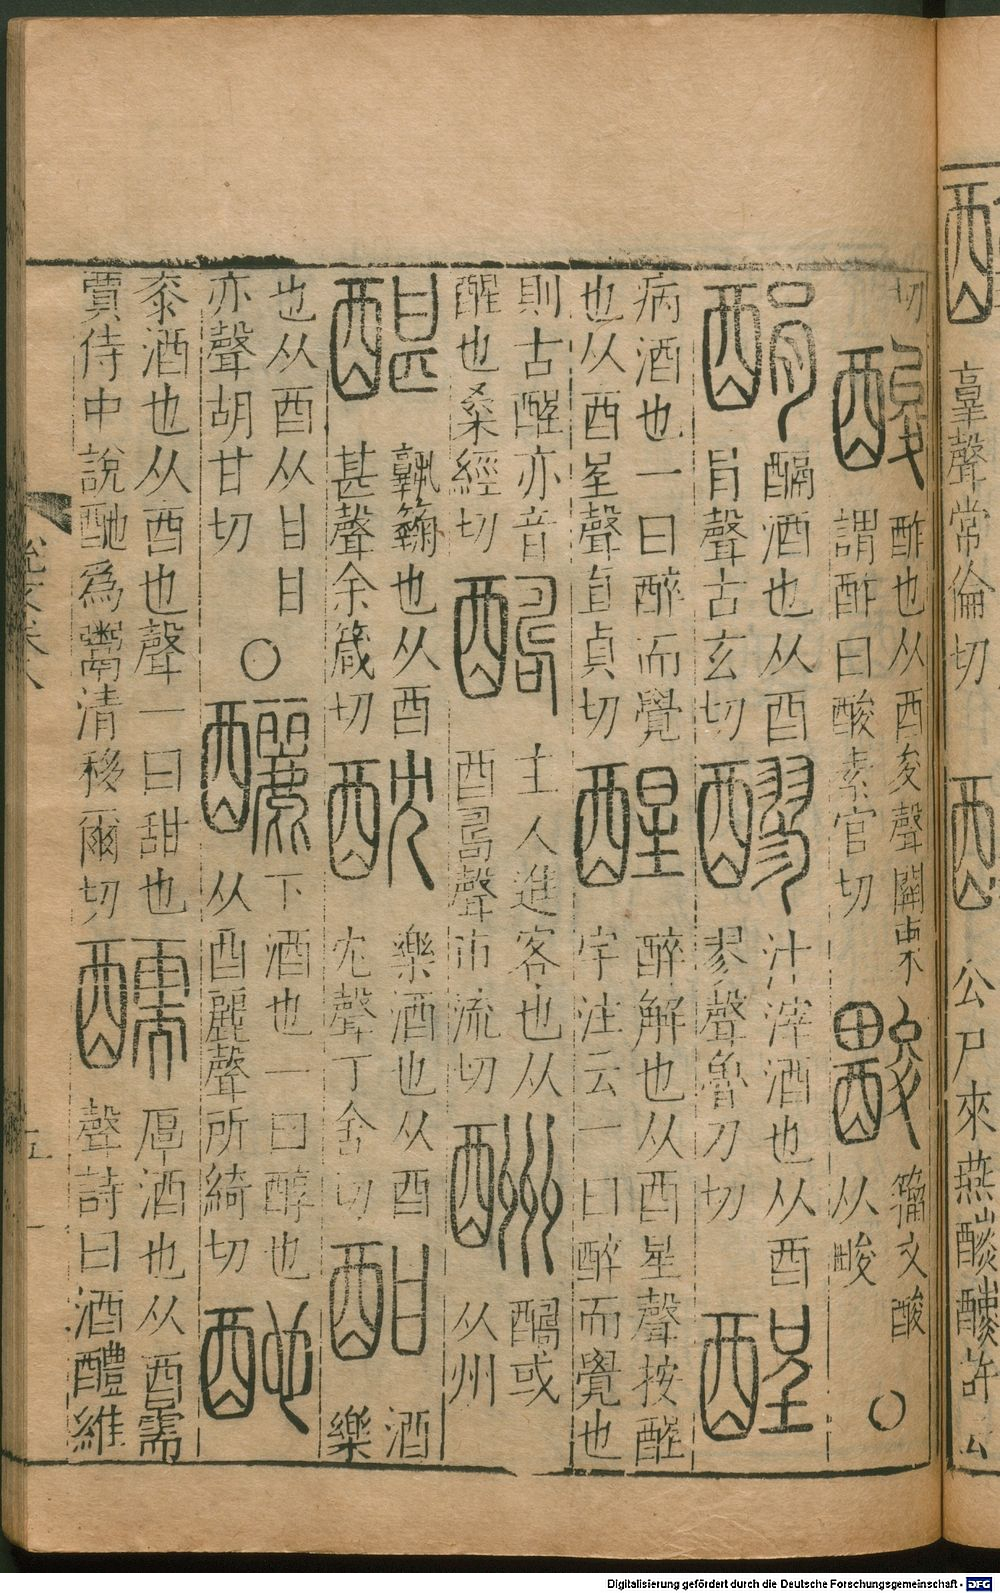 𦎫聲常倫切
公尸來燕醺醺許云
切
酸
酢也从酉夋聲關東
謂酢曰酸素官切
籒文酸
从畯
○
䤍酒也从酉
肙聲古玄切
醪
汁滓酒也从酉
翏聲魯刀切
酲
病酒也一曰醉而覺
也从酉呈聲直貞切
醒
醉解也从酉星聲按酲
字注云一曰醉而覺也
則古酲亦音
醒也桑經切
醻
主人進客也从
酉𠷎聲市流切
酬
醻或
从州
㽎
孰䴷也从酉
甚聲余箴切
酖
樂酒也从酉
冘聲丁含切
酣
酒
樂
也从酉从甘甘
亦聲胡甘切
○
釃
下酒也一曰醇也
从酉麗聲所綺切
酏
黍酒也从酉也聲一曰甜也
賈侍中說酏爲鬻清移爾切
醹
厚酒也从酉需
聲詩曰酒醴維
Digitalisierung gefördert durch die Deutsche Forschungsgemeinschaft - DFG